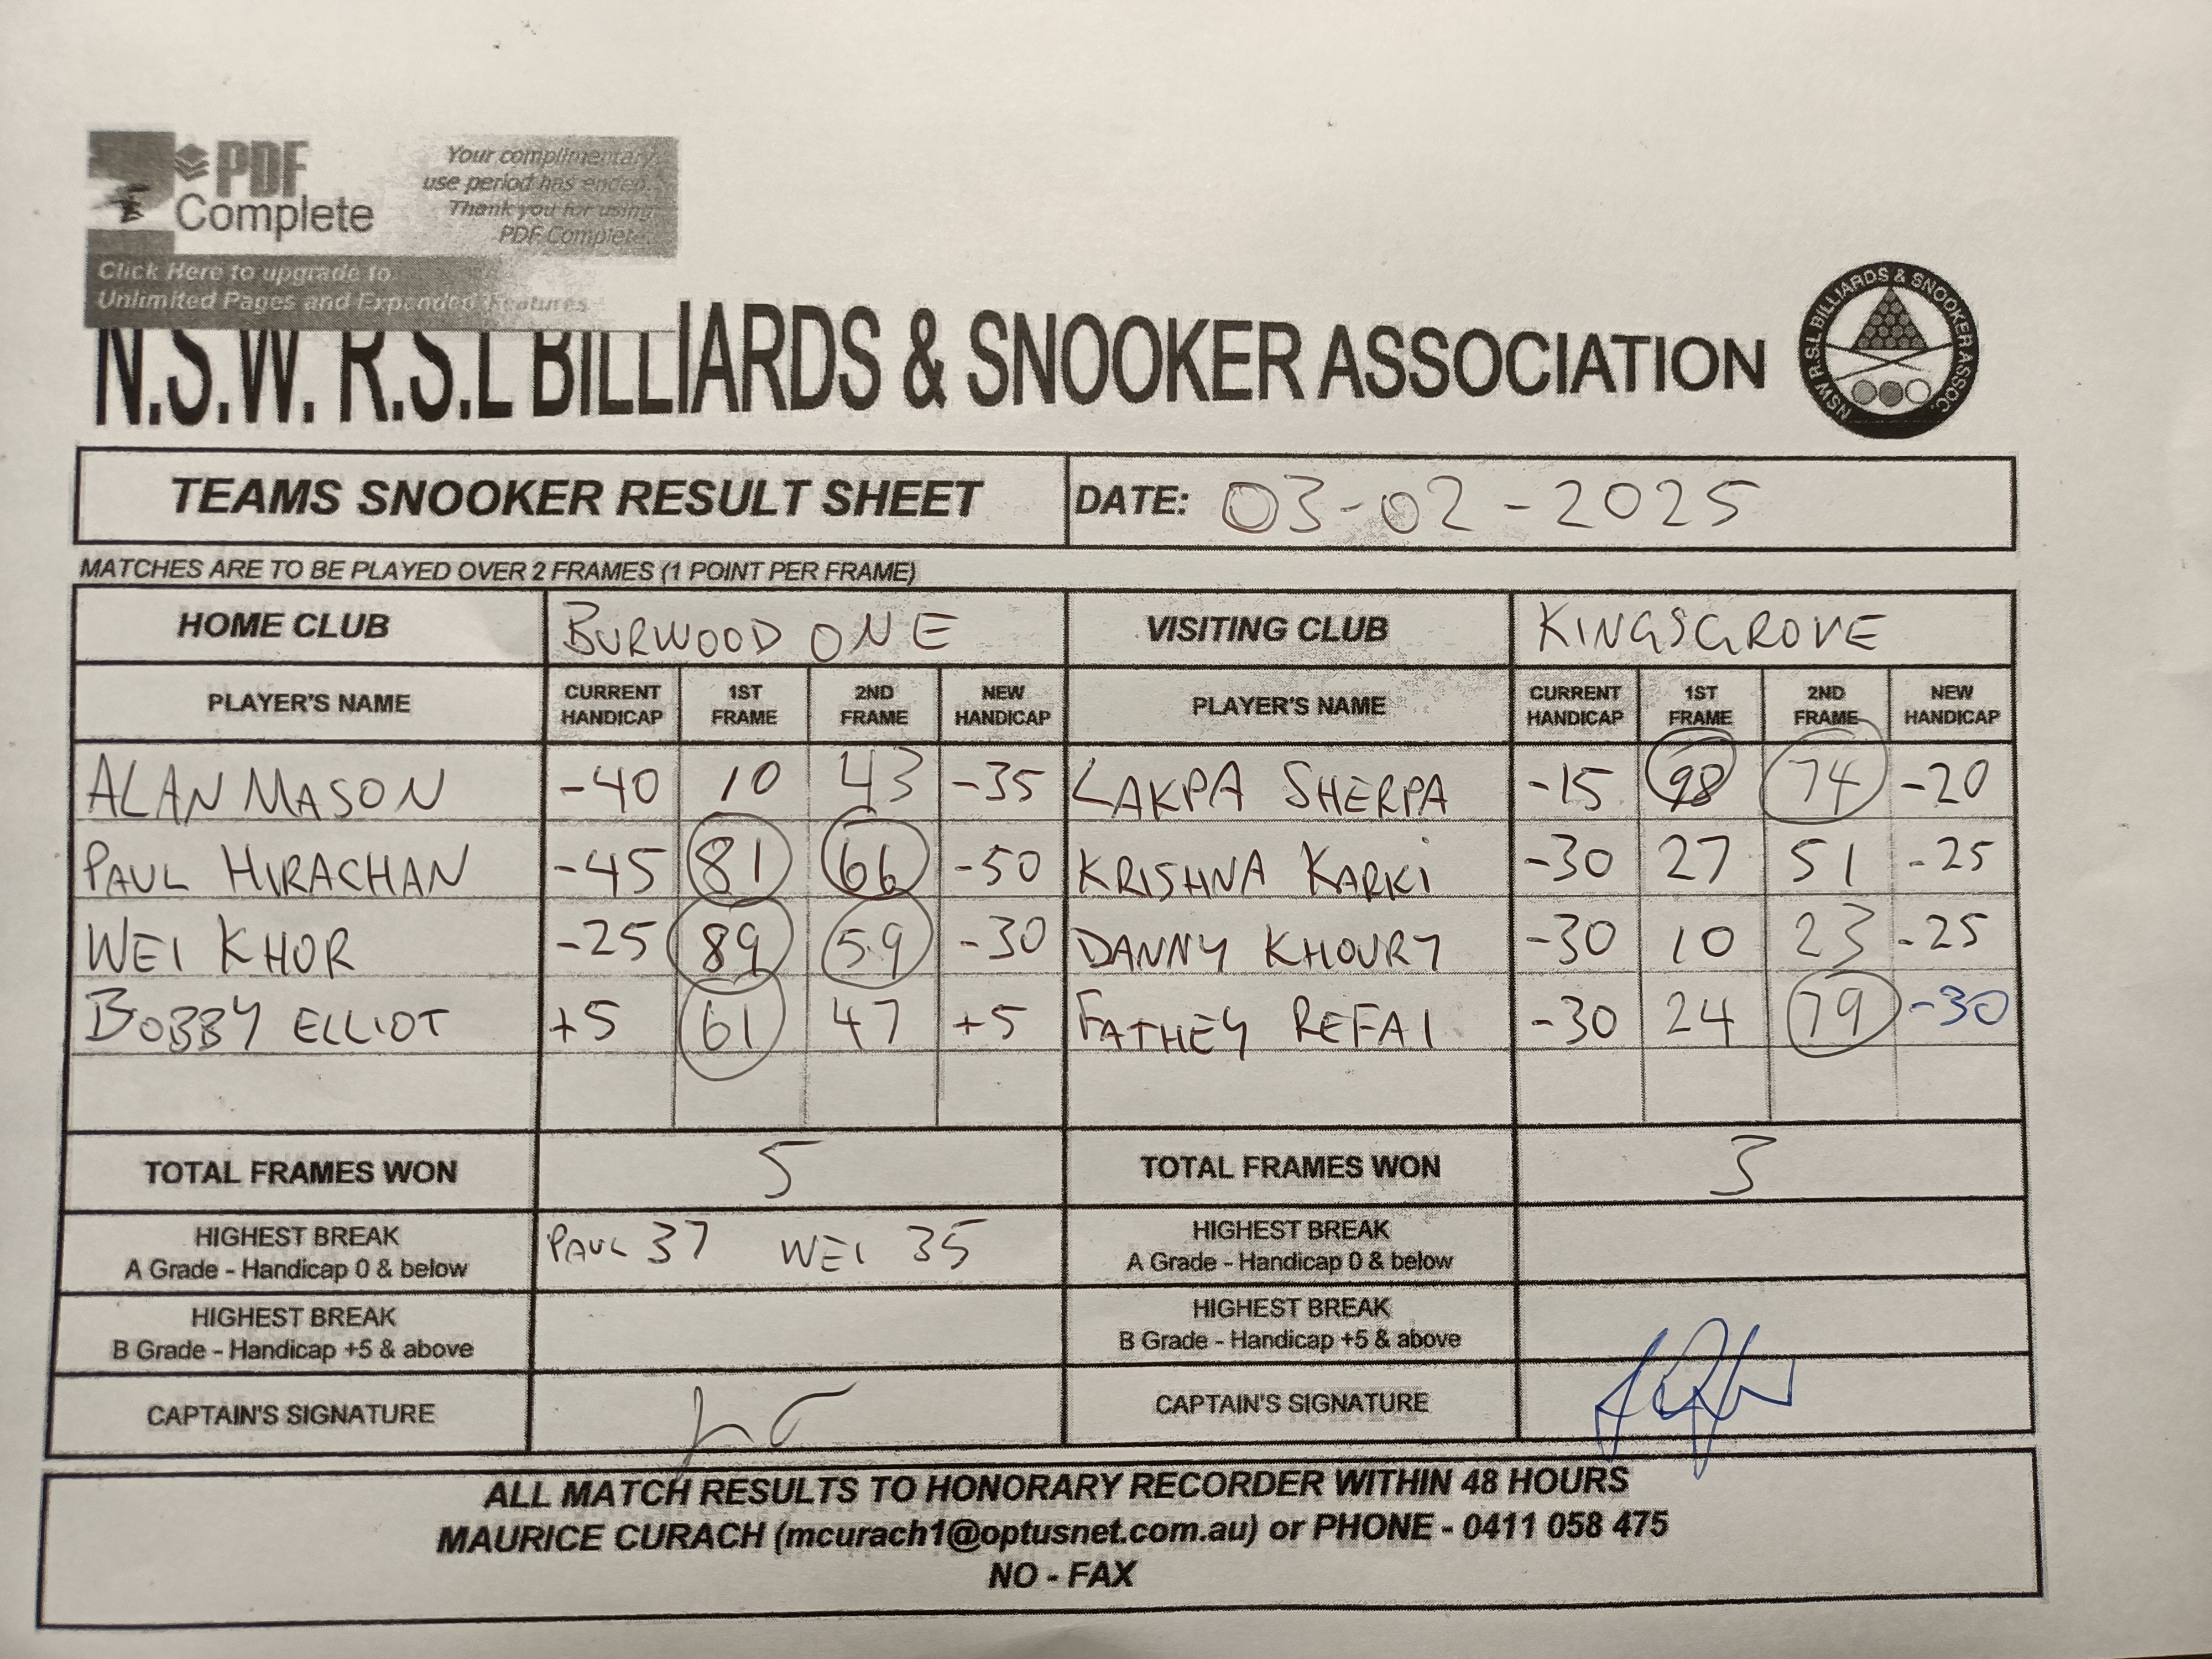 PDF
Complete
Your complimentary
use period has ended.
Thank you for using
PDF Complete.
Click Here to upgrade to
Unlimited Pages and Expanded Features
N.S.W. R.S.L BILLIARDS & SNOOKER ASSOCIATION
NSW R.S.L BILLIARDS & SNOOKER ASSOC.
TEAMS SNOOKER RESULT SHEET DATE: 03-02-2025
MATCHES ARE TO BE PLAYED OVER 2 FRAMES (1 POINT PER FRAME)
HOME CLUB BURWOOD ONE VISITING CLUB KINGSGROVE
PLAYER'S NAME CURRENT HANDICAP 1ST FRAME 2ND FRAME NEW HANDICAP PLAYER'S NAME CURRENT HANDICAP 1ST FRAME 2ND FRAME NEW HANDICAP
ALAN MASON -40 10 43 -35 LAKPA SHERPA -15 98 74 -20
PAUL HIRACHAN -45 81 66 -50 KRISHNA KARKI -30 27 51 -25
WEI KHOR -25 89 59 -30 DANNY KHOURY -30 10 23 -25
BOBBY ELLIOT +5 61 47 +5 FATHEY REFAI -30 24 79 -30
TOTAL FRAMES WON 5 TOTAL FRAMES WON 3
HIGHEST BREAK
A Grade - Handicap 0 & below PAUL 37 WEI 35
HIGHEST BREAK
A Grade - Handicap 0 & below
HIGHEST BREAK
B Grade - Handicap +5 & above
HIGHEST BREAK
B Grade - Handicap +5 & above
CAPTAIN'S SIGNATURE CAPTAIN'S SIGNATURE
ALL MATCH RESULTS TO HONORARY RECORDER WITHIN 48 HOURS
MAURICE CURACH (mcurach1@optusnet.com.au) or PHONE - 0411 058 475
NO - FAX